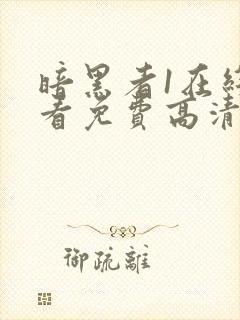 暗黑者1在线
看免费高清
御疏離